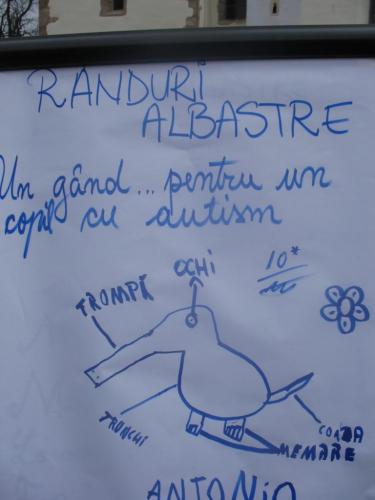 RÂNDURI
ALBASTRE
Un gând... pentru un
copil cu autism
OCHI
10*
TROMPĂ
TRONCHI
COADA
MEMBRE
ANTONIO